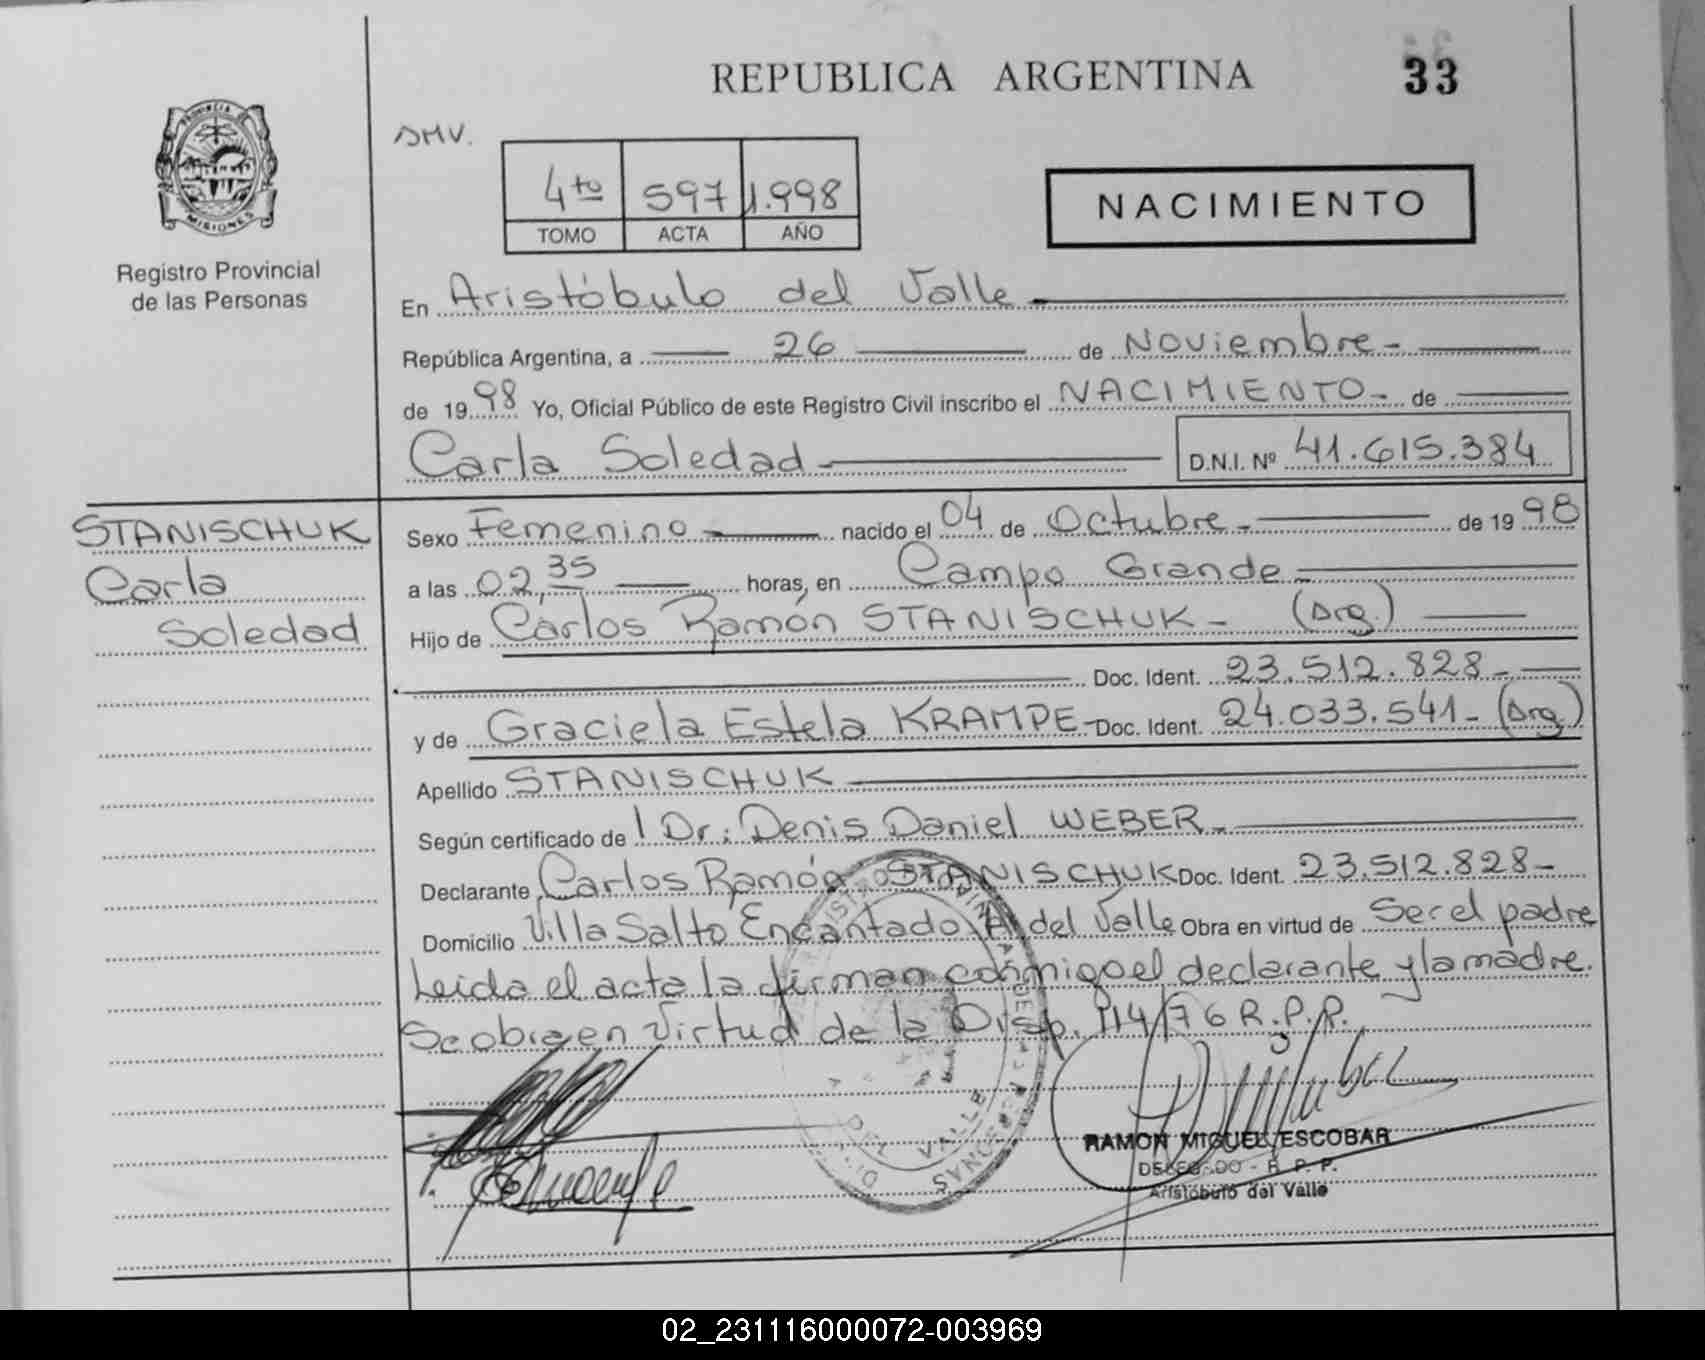 REPUBLICA ARGENTINA
33
SMV.
4to 597 1.998
TOMO ACTA AÑO
NACIMIENTO
PROVINCIA DE
MISIONES
Registro Provincial
de las Personas
En Aristóbulo del Valle
República Argentina, a 26 de Noviembre-
de 1998 Yo, Oficial Público de este Registro Civil inscribo el NACIMIENTO- de
Carla Soledad D.N.I. Nº 41.615.384
STANISCHUK
Carla
Soledad
Sexo Femenino nacido el 04 de Octubre- de 1998
a las 02,35 horas, en Campo Grande
Hijo de Carlos Ramón STANISCHUK- (Arg.)
Doc. Ident. 23.512.828-
y de Graciela Estela KRAMPE- Doc. Ident. 24.033.541- (Arg)
Apellido STANISCHUK
Según certificado de Dr: Denis Daniel WEBER-
Declarante Carlos Ramón STANISCHUK Doc. Ident. 23.512.828-
Domicilio Villa Salto Encantado A. del Valle Obra en virtud de Ser el padre
Leida el acta la firman conmigo el declarante y la madre.
Se obra en Virtud de la Disp. 114/76 R.P.P.
DEL VALLE
RAMON MIGUEL ESCOBAR
DELEGADO - R. P. P.
Aristóbulo del Valle
02_231116000072-003969